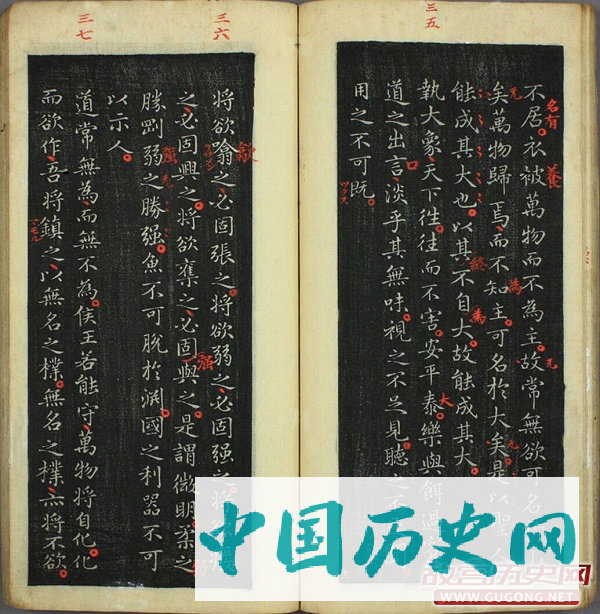 三五
不居衣被萬物而不為主故常無欲可名
矣萬物歸焉而不知主可名於大矣是以聖人
能成其大也以其不自大故能成其大
執大象天下往往而不害安平泰樂與餌過
道之出言淡乎其無味視之不足見聽之不
用之不可既
名有
養
无
為
无
終
為
口
大
三六
將欲噏之必固張之將欲弱之必固强之將欲
之必固興之將欲奪之必固與之是謂微明柔之
勝剛弱之勝强魚不可脫於淵國之利器不可
以示人
歙
强
强
三七
道常無為而無不為侯王若能守萬物將自化化
而欲作吾將鎮之以無名之樸無名之樸亦將不欲
中国历史网
故宫历史网
WWW.GUGONG.NET